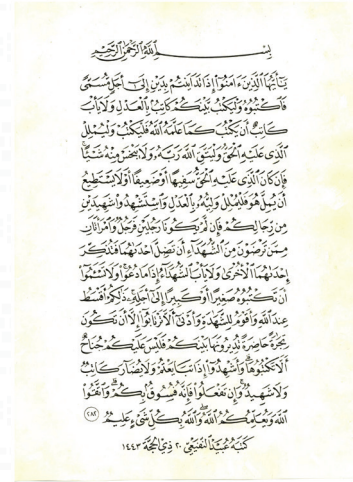 بِسْمِ اللَّهِ الرَّحْمَٰنِ الرَّحِيمِ
يَٰٓأَيُّهَا ٱلَّذِينَ ءَامَنُوٓا۟ إِذَا تَدَايَنتُم بِدَيْنٍ إِلَىٰٓ أَجَلٍ مُّسَمًّى
فَٱكْتُبُوهُ وَلْيَكْتُب بَّيْنَكُمْ كَاتِبٌۢ بِٱلْعَدْلِ وَلَا يَأْبَ
كَاتِبٌ أَن يَكْتُبَ كَمَا عَلَّمَهُ ٱللَّهُ فَلْيَكْتُبْ وَلْيُمْلِلِ
ٱلَّذِى عَلَيْهِ ٱلْحَقُّ وَلْيَتَّقِ ٱللَّهَ رَبَّهُۥ وَلَا يَبْخَسْ مِنْهُ شَيْـًٔا
فَإِن كَانَ ٱلَّذِى عَلَيْهِ ٱلْحَقُّ سَفِيهًا أَوْ ضَعِيفًا أَوْ لَا يَسْتَطِيعُ
أَن يُمِلَّ هُوَ فَلْيُمْلِلْ وَلِيُّهُۥ بِٱلْعَدْلِ وَٱسْتَشْهِدُوا۟ شَهِيدَيْنِ
مِن رِّجَالِكُمْ فَإِن لَّمْ يَكُونَا رَجُلَيْنِ فَرَجُلٌ وَٱمْرَأَتَانِ
مِمَّن تَرْضَوْنَ مِنَ ٱلشُّهَدَآءِ أَن تَضِلَّ إِحْدَىٰهُمَا فَتُذَكِّرَ
إِحْدَىٰهُمَا ٱلْأُخْرَىٰ وَلَا يَأْبَ ٱلشُّهَدَآءُ إِذَا مَا دُعُوا۟ وَلَا تَسْـَٔمُوٓا۟
أَن تَكْتُبُوهُ صَغِيرًا أَوْ كَبِيرًا إِلَىٰٓ أَجَلِهِۦ ذَٰلِكُمْ أَقْسَطُ
عِندَ ٱللَّهِ وَأَقْوَمُ لِلشَّهَٰدَةِ وَأَدْنَىٰٓ أَلَّا تَرْتَابُوٓا۟ إِلَّآ أَن تَكُونَ
تِجَٰرَةً حَاضِرَةً تُدِيرُونَهَا بَيْنَكُمْ فَلَيْسَ عَلَيْكُمْ جُنَاحٌ
أَلَّا تَكْتُبُوهَا وَأَشْهِدُوٓا۟ إِذَا تَبَايَعْتُمْ وَلَا يُضَآرَّ كَاتِبٌ
وَلَا شَهِيدٌ وَإِن تَفْعَلُوا۟ فَإِنَّهُۥ فُسُوقٌۢ بِكُمْ وَٱتَّقُوا۟
ٱللَّهَ وَيُعَلِّمُكُمُ ٱللَّهُ وَٱللَّهُ بِكُلِّ شَىْءٍ عَلِيمٌ ٢٨٢
كَتَبَهُ عُبَيْدٌ النَّفِيعِي ٢٠ ذِي الحِجَّة ١٤٤٣